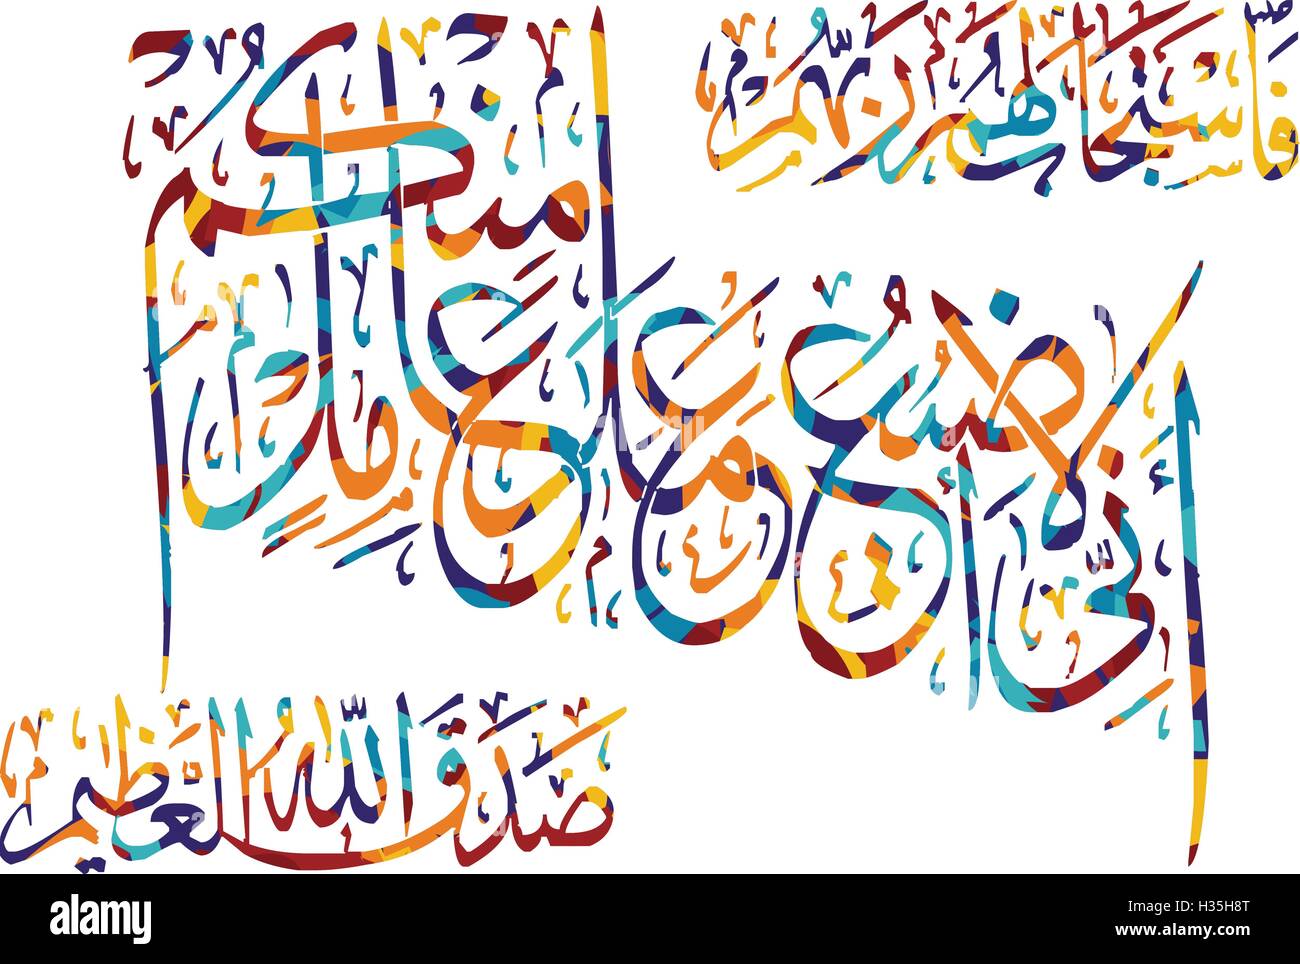 فَاسْتَجَابَ لَهُمْ رَبُّهُمْ
أَنِّي لَا أُضِيعُ عَمَلَ عَامِلٍ مِنْكُمْ
صَدَقَ اللَّهُ الْعَظِيمُ
alamy
Image ID: H35H8T
www.alamy.com